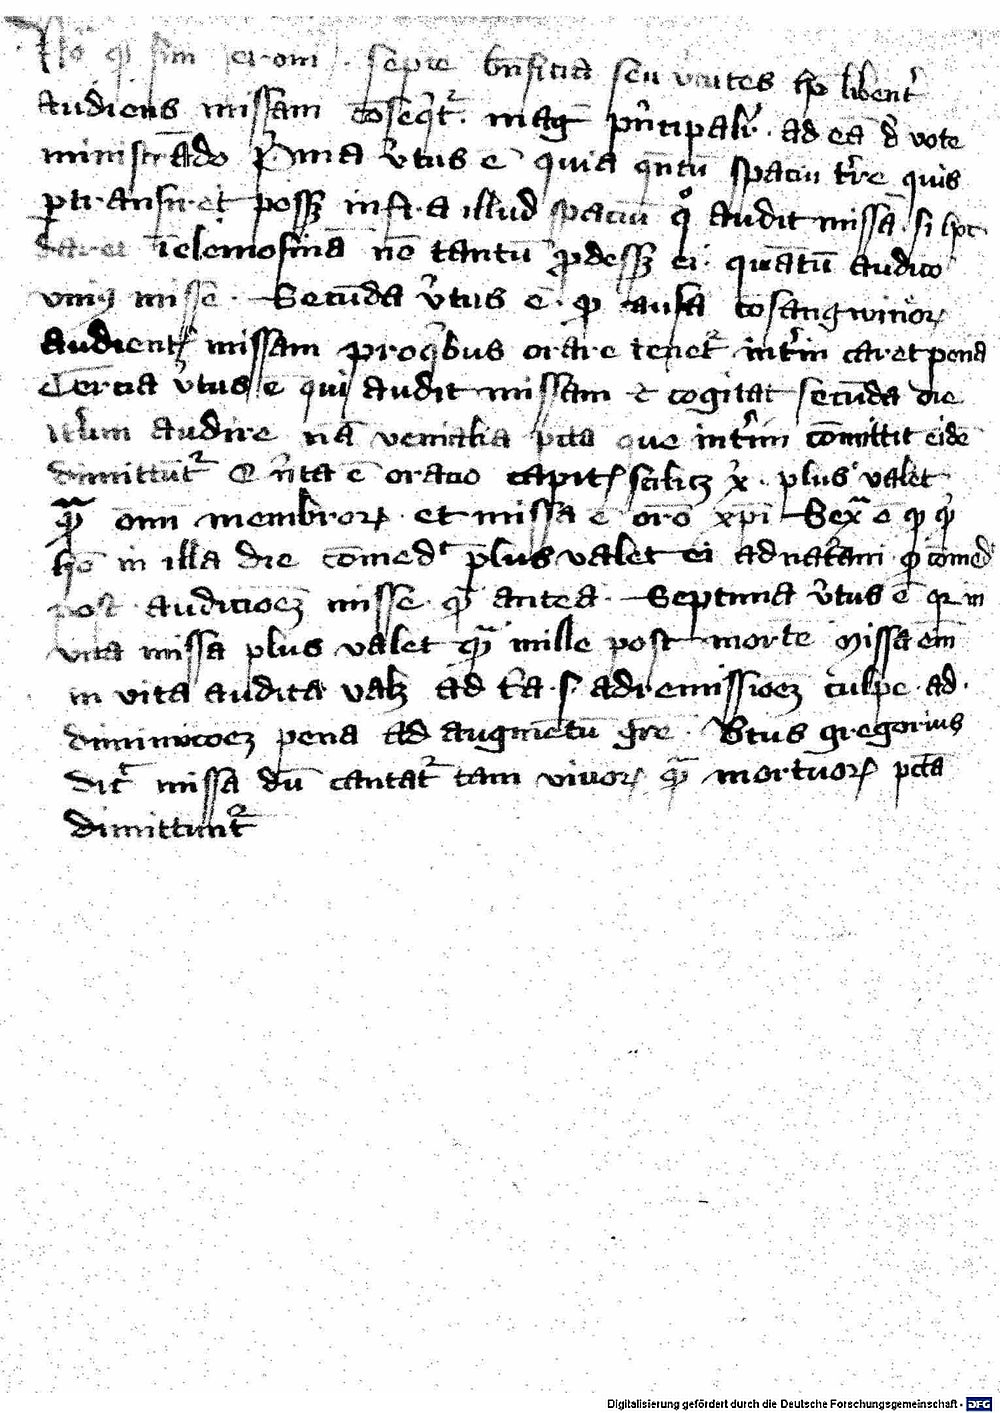 Nō qͩ sm̄ ierom̄ . septē bn̄ficia seu v̓tutes hō libent̓
audiens missam cōseq̓t᷑ . maḡ pn̓cipalr̓ . ad eā d̓ vote
ministrādo p̓ma v̓tus ē quia qn̄tū spaciū tr̄re quis
ꝑtransiret possꝫ infra illud spaciū qͦ audit missā si hp̄c
daret ī elemosinā nō tantū ꝓdessꝫ ei . quātū audico
vniꝰ misse . Secūda v̓tus ē . ꝙ causa cōsangwineoꝝ
audient missam pro qͥbus orare tenet᷑ int̓im caret pena
Tercia v̓tus ē qui audit missam ⁊ cogitat secūda die
it̓um audire nā venialia pcc̄a que int̓im cōmittit eidē
dimittūt᷑ Qͣrta ē oracio capitꝭ scilicꝫ x̓ . plus valet
qͣ̄ om̄i membroꝝ . et missa ē oro xp̄i Sexͣ ē ꝙ qͥ
hō in illa die cōmedͭ plus valet ei ad nat̓am qͣ̄ cōmedͭ
post audicōeꝫ misse qͣ̄ antea . Septima v̓tus ē qꝛ in
vita missa plus valet qͣ̄ mille post morte Missa em̄
in vita audita valꝫ ad tr̄a . s . ad remissioeꝫ culpe . ad .
diminucoeꝫ pena ad augmētū gr̄e . Btūs gregorius
dic̄t missa dū cantat᷑ tam viuoꝝ qͣ̄ mortuoꝝ pcc̄a
dimittunt᷑
Digitalisierung gefördert durch die Deutsche Forschungsgemeinschaft - DFG